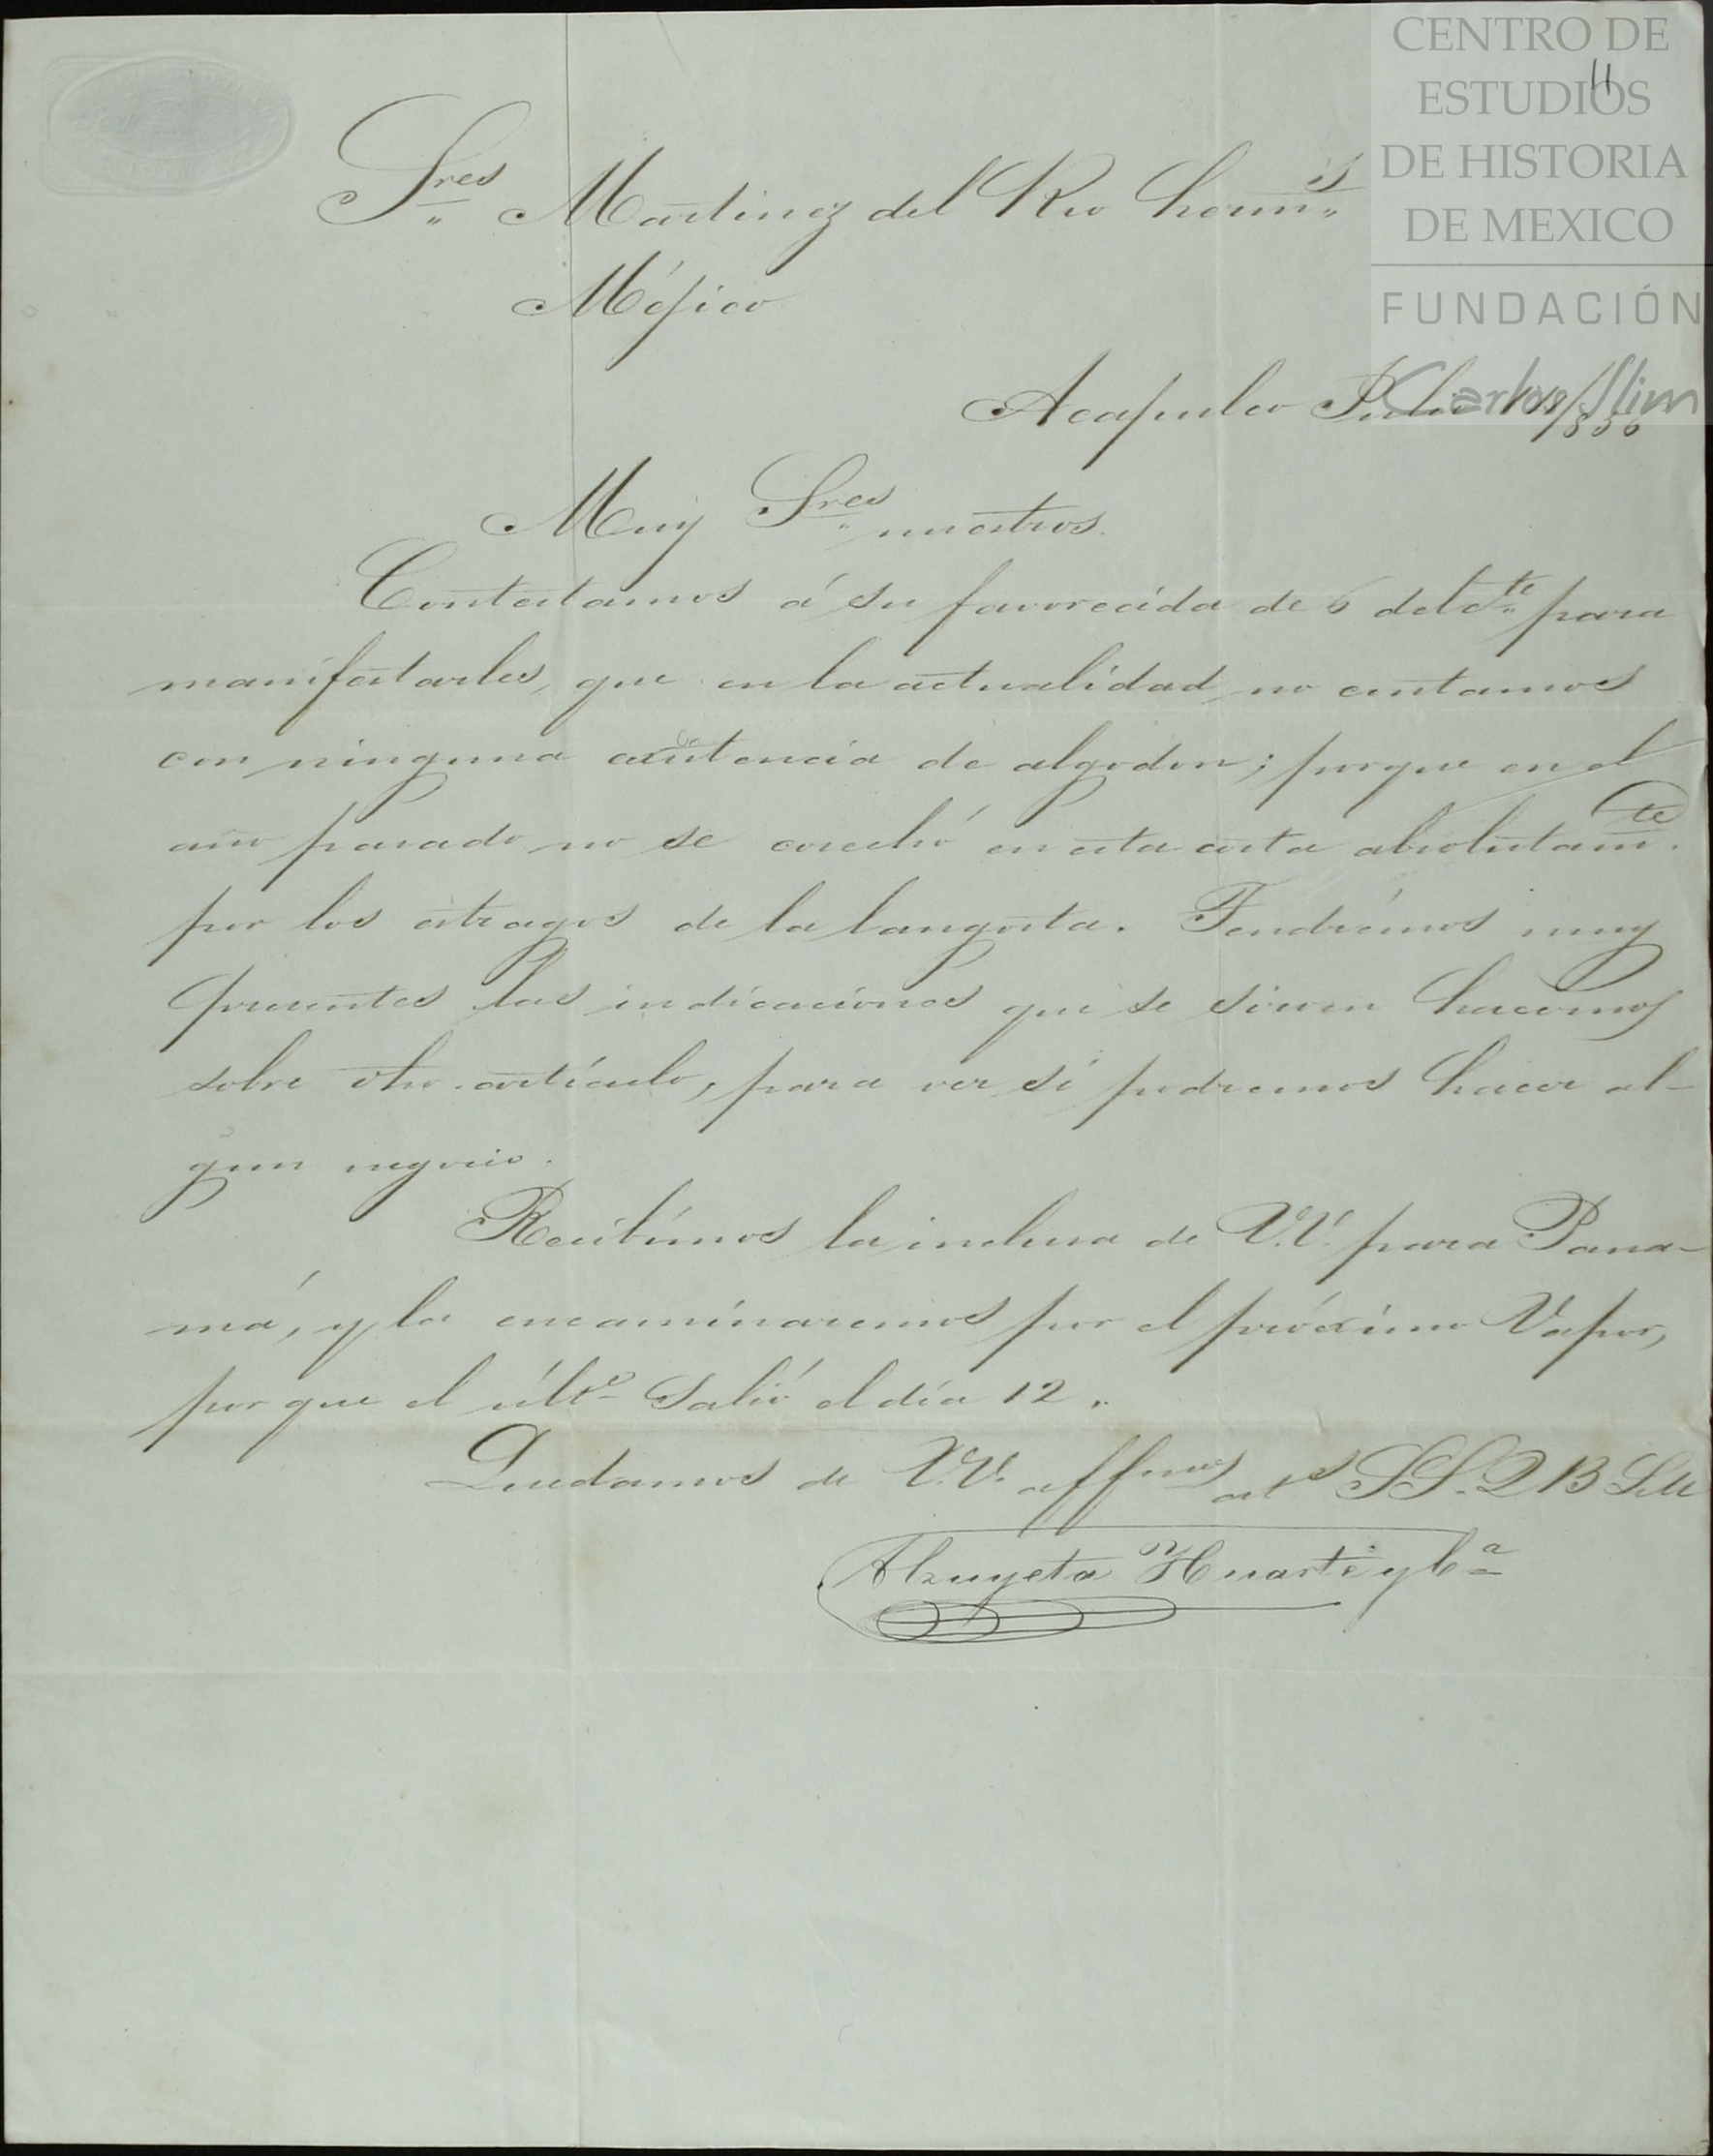 CENTRO DE
ESTUDIOS
DE HISTORIA
DE MEXICO
FUNDACIÓN
Carlos Slim
11
Sres Martinez del Rio hermos
Méjico
Acapulco Julio /856
Muy Sres nuestros.
Contestamos á su favorecida de 6 del cte para
manifestarles, que en la actualidad no contamos
con ninguna existencia de algodon; porque en el
año pasado no se cosechó en esta costa absolutamte.
por los estragos de la langosta. Tendrémos muy
presentes las indicaciones que se sirven hacernos
sobre dho. artículo, para ver si podremos hacer al-
gun negocio.
Recibímos la inclusa de V.V. para Pana-
má, y la encaminaremos por el próximo Vapor,
por que el últo salió el día 12.
Quedamos de V.V. affmos ats SS. Q B SM
Alzuyeta Huarte y Ca